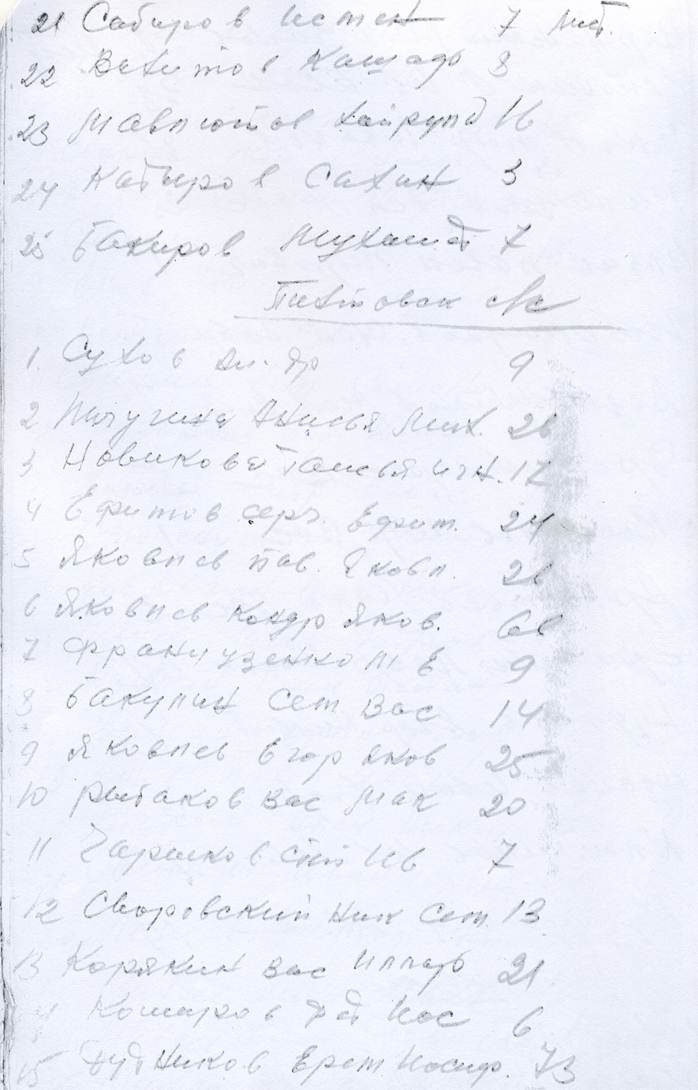 21 Сабиров Истен 7
22 Вахитов 3
23 Мавлютов Хайрул 16
24 Кабиров Сахин 3
25 Бакиров Мухамет 7
1. Сухов 9
2 Пичугина Анисья Мих. 26
3 Новикова Таисья 17
4 Ефимов Серг. Ефим. 24
5 Яковлев Пав. Яковл. 26
6 Яковлев Кондр Яков.
7 Французенко М Е 9
8 Бакулин Сем Вас 14
9 Яковлев Егор Яков 25
10 Рыбаков Вас Мак 20
11 Ив 7
12 Своровский Ник Сем 13
13 Карякин Вас Иллар 21
Комаров Иос 6
15 Дудников Ерем Иосиф. 73